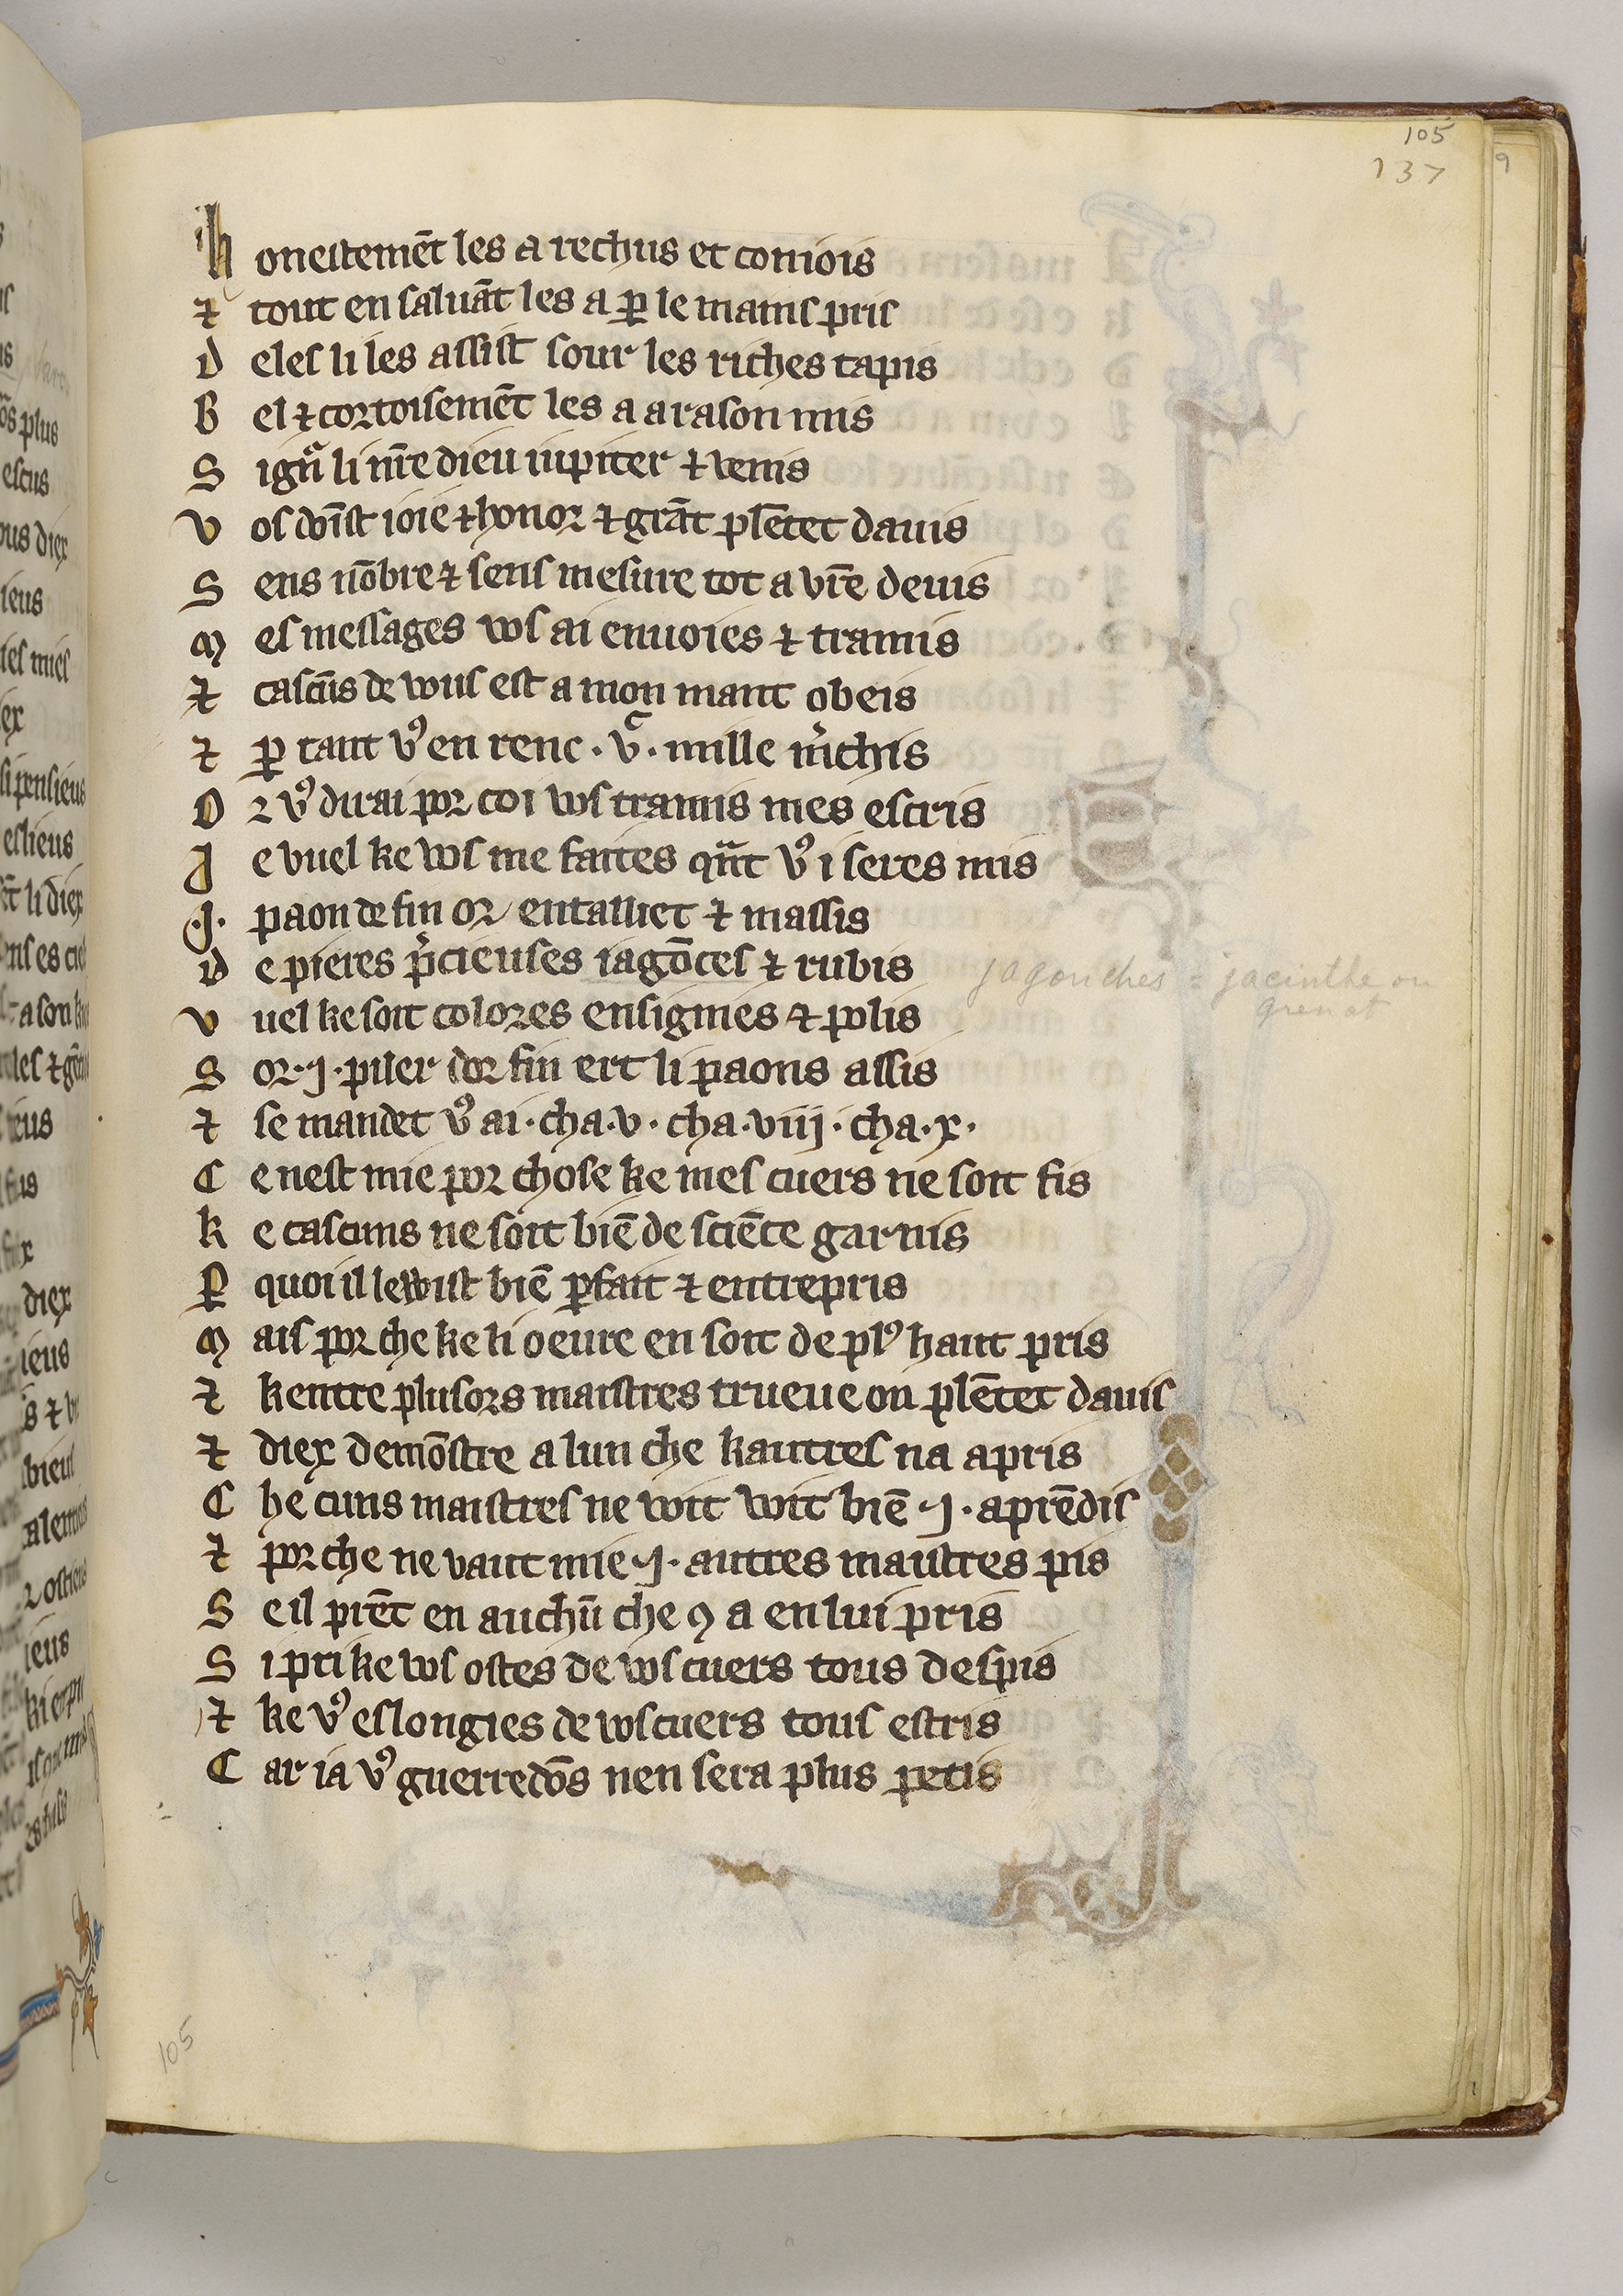 105
137
honestemēt les a rechus et coniois
⁊ tout en saluāt les a ꝑ le mains pris
d eles li les assist sour les riches tapis
B el ⁊ cortoisemēt les a a rason mis
S ign̄ li nr̄e dieu iupiter ⁊ venis
v os doīst ioie ⁊ honor ⁊ grāt plētet dauis
S ens nōbre ⁊ sens mesure tot a vr̄e deuis
M es messages vos ai enuoies ⁊ tramis
⁊ cascūs de vous est a mon mant obeis
⁊ ꝑ tant vꝰ en renc · v.ᶜ · mille m̾chis
O r vꝰ dirai por coi vos tramis mes escris
J e vuel ke vos me faites qᵃ̄t vꝰ i seres mis
·J· paon de fin or entalliet ⁊ massis
d e pieres p̾cieuses iagōces ⁊ rubis
jagonches = jacinthe ou
grenat
v uel ke soit colores ensignies ⁊ polis
S or · J · piler dor fin ert li paons assis
⁊ se mandet vꝰ ai · cha · v · cha · viij · cha · x ·
C e nest mie por chose ke mes cuers ne soit fis
k e cascuns ne soit biē de sciēce garnis
ꝑ quoi il leuist biē ꝑfait ⁊ entrepris
M ais por che ke li oeure en soit de plꝰ haut pris
⁊ kentre plusors maistres trueue on plētet dauis
⁊ diex demōstre a lun che kautres na apris
C he cuns maistres ne voit voit biē · J · aprēdis
⁊ por che ne vaut mie · J · autres maistres pis
S e il prēt en auchū che ꝯ a en lui pris
S i pri ke vos ostes de vos cuers tous despis
⁊ ke vꝰ eslongies de vos cuers tous estris
C ar ia vꝰ guerredōs nen sera plus petis
105